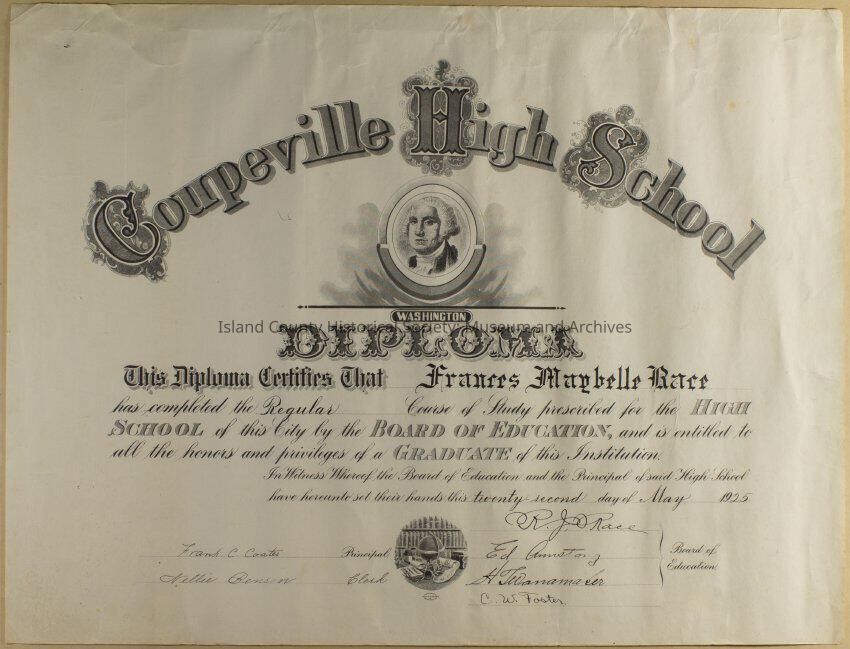 Coupeville High School
WASHINGTON
Island County Historical Society, Museum and Archives
DIPLOMA
This Diploma Certifies That Frances Maybelle Race
has completed the Regular Course of Study prescribed for the HIGH
SCHOOL of this City by the BOARD OF EDUCATION, and is entitled to
all the honors and privileges of a GRADUATE of this Institution.
In Witness Whereof the Board of Education and the Principal of said High School
have hereunto set their hands this twenty second day of May 1925
R. J. Race
Frank C Coates Principal Ed Armstrong Board of
Nellie Benson Clerk Education
C. W. Foster